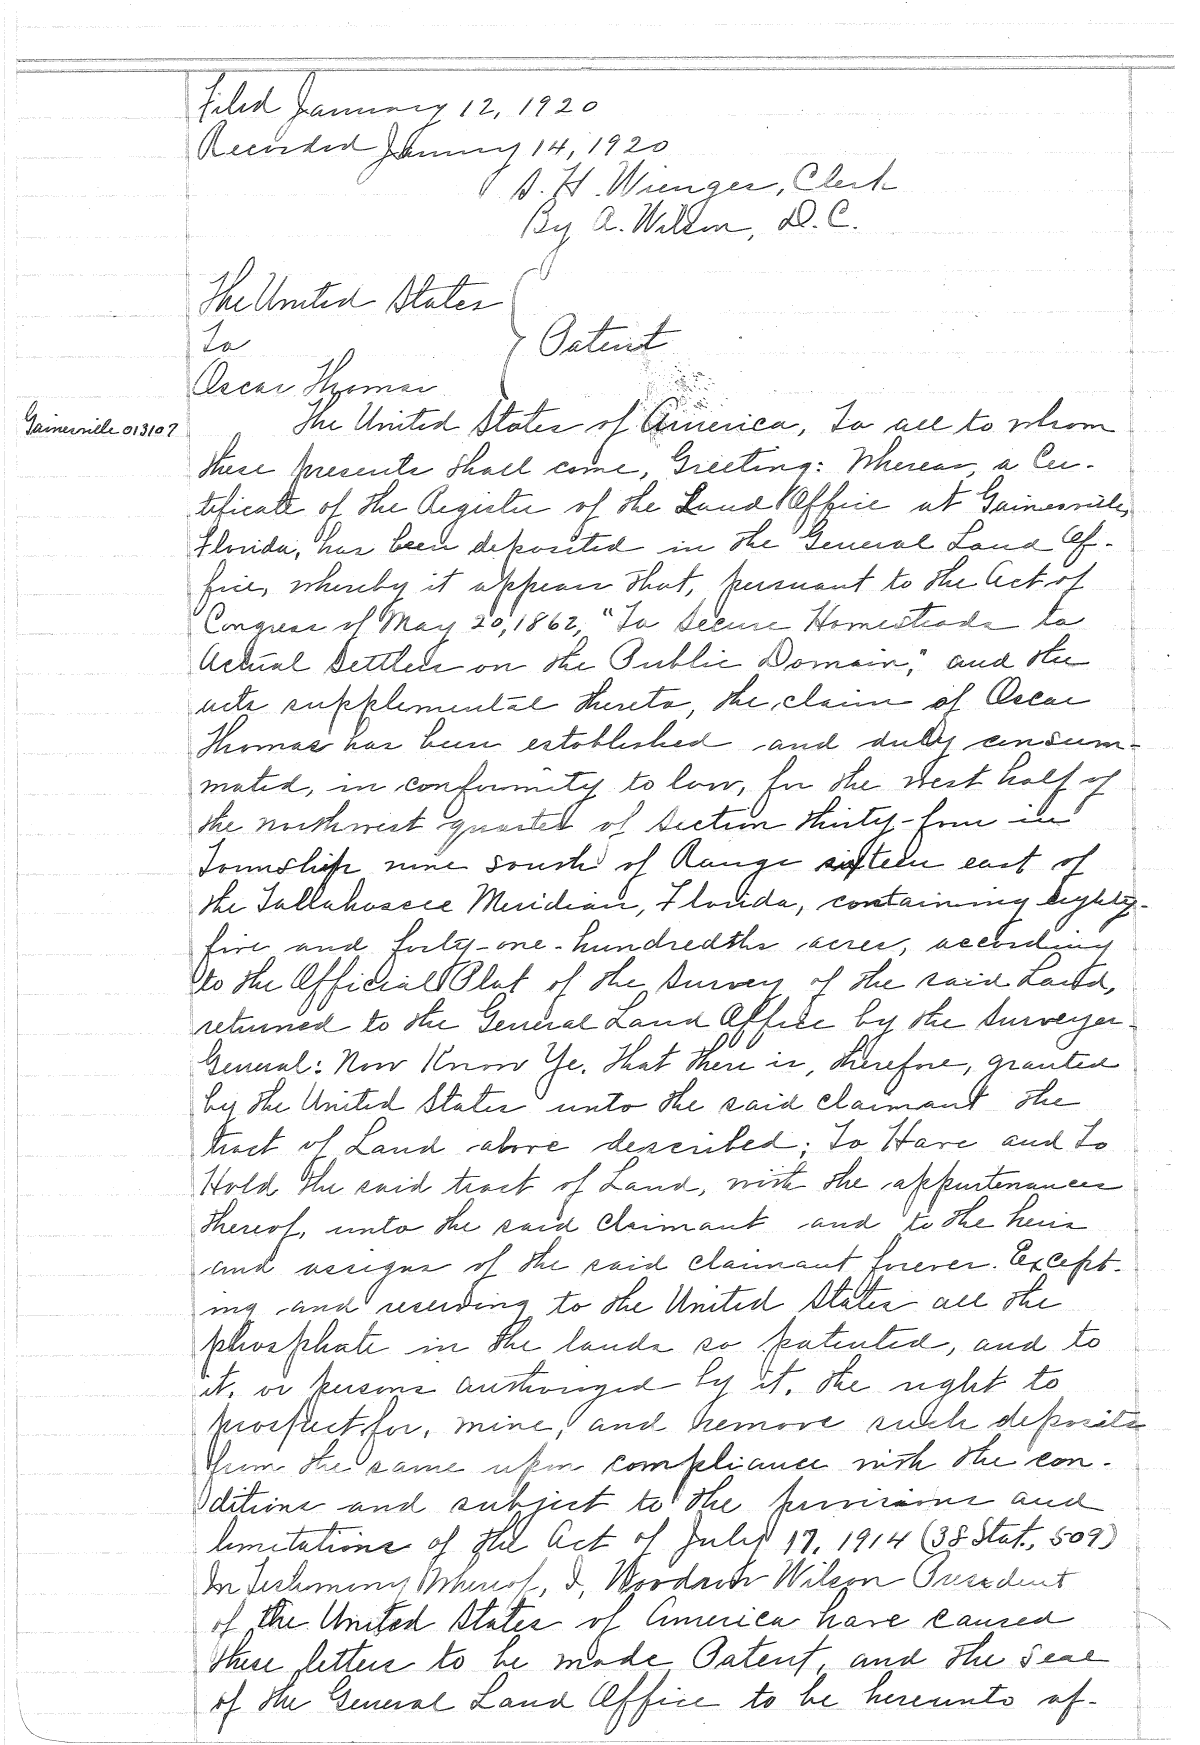 Filed January 12, 1920
Recorded January 14, 1920
S. H. Wienges, Clerk
By A. Wilson, D.C.
The United States
To
Patent
Oscar Thomas
Gainesville 013107
The United States of America, To all to whom
these presents shall come, Greeting: Whereas, a Cer-
tificate of the Register of the Land Office at Gainesville,
Florida, has been deposited in the General Land Of-
fice, whereby it appears that, pursuant to the Act of
Congress of May 20, 1862, "To Secure Homesteads to
Actual Settlers on the Public Domain," and the
acts supplemental thereto, the claim of Oscar
Thomas has been established and duly consum-
mated, in conformity to law, for the west half of
the northwest quarter of Section thirty-four in
Township nine south of Range sixteen east of
the Tallahassee Meridian, Florida, containing eighty-
five and forty-one-hundredths acres, according
to the Official Plat of the Survey of the said Land,
returned to the General Land Office by the Surveyor-
General: Now Know Ye, That there is, therefore, granted
by the United States unto the said claimant the
tract of Land above described; To Have and to
Hold the said tract of Land, with the appurtenances
thereof, unto the said claimant and to the heirs
and assigns of the said claimant forever. Except-
ing and reserving to the United States all the
phosphate in the lands so patented, and to
it, or persons authorized by it, the right to
prospect for, mine, and remove such deposits
from the same upon compliance with the con-
ditions and subject to the provisions and
limitations of the Act of July 17, 1914 (38 Stat., 509)
In Testimony Whereof, I, Woodrow Wilson President
of the United States of America have caused
these letters to be made Patent, and the Seal
of the General Land Office to be hereunto af-